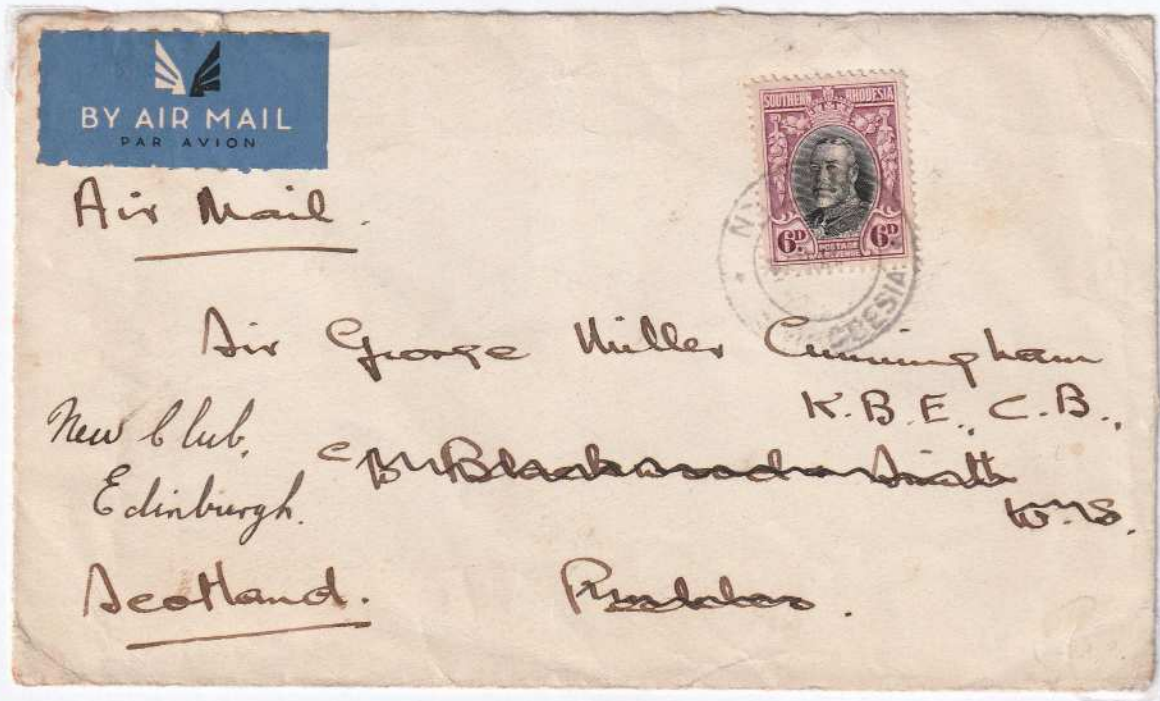 BY AIR MAIL
PAR AVION
SOUTHERN RHODESIA
6D. POSTAGE & REVENUE 6D.
Air Mail.
Sir George Miller Cunningham
K.B.E., C.B.,
New Club,
Edinburgh.
W.S.
Scotland.
Peebles.